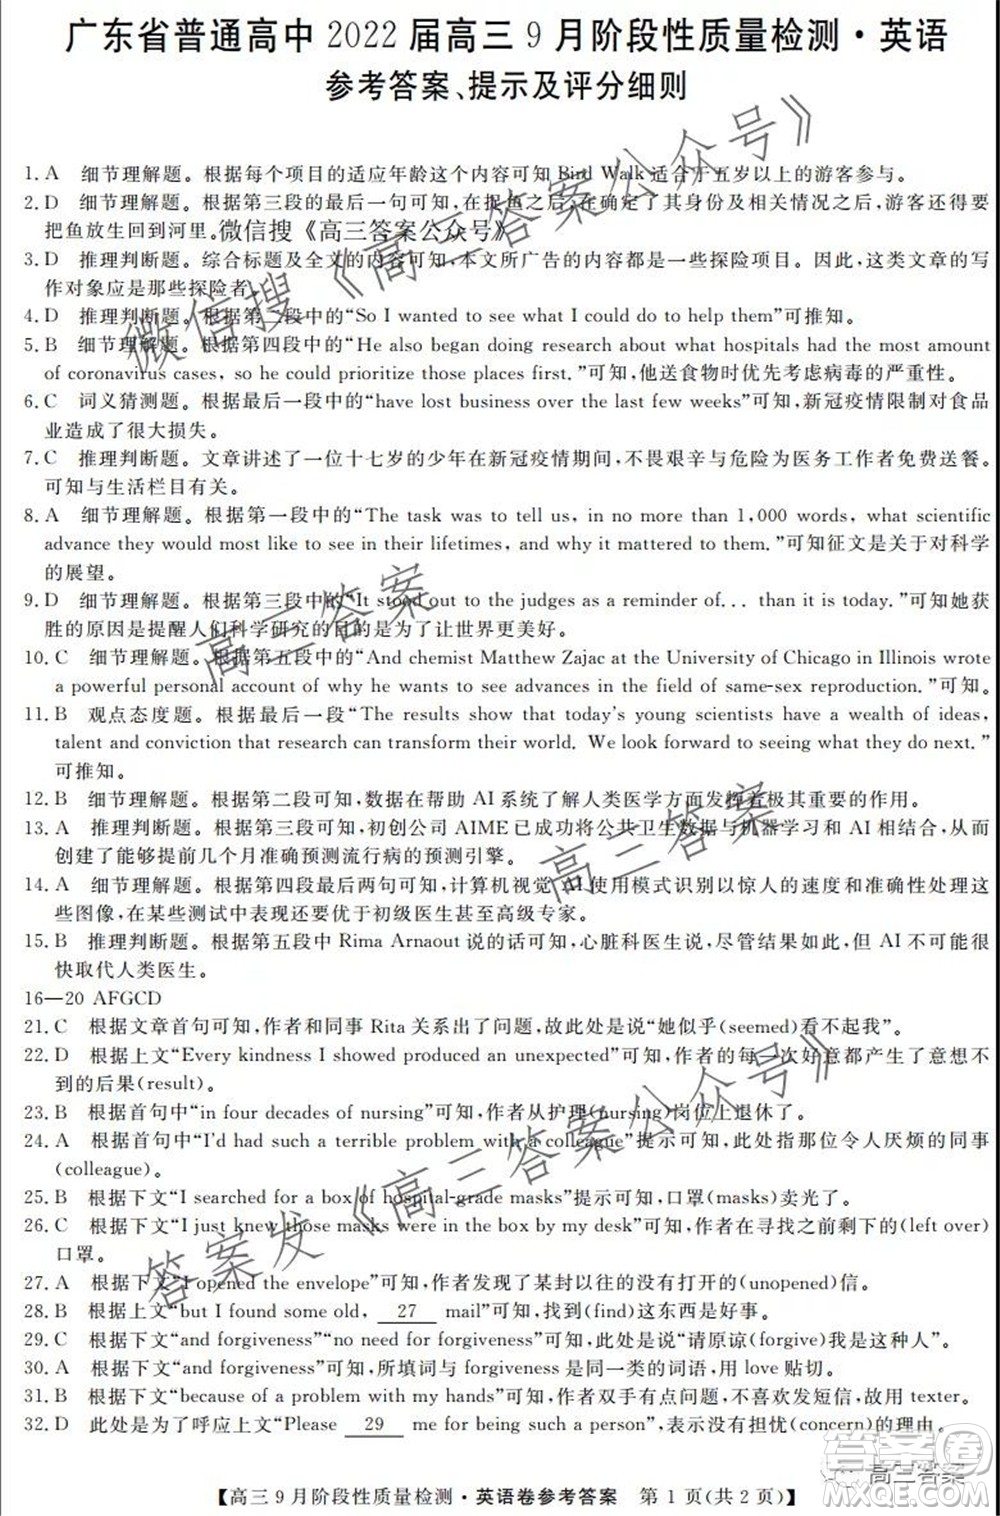 广东省普通高中 2022 届高三 9 月阶段性质量检测·英语
参考答案、提示及评分细则
1. A　细节理解题。根据每个项目的适应年龄这个内容可知 Bird Walk 适合于五岁以上的游客参与。
2. D　细节理解题。根据第三段的最后一句可知,在捉鱼之后,在确定了其身份及相关情况之后,游客还得要
把鱼放生回到河里。微信搜《高三答案公众号》
3. D　推理判断题。综合标题及全文的内容可知,本文所广告的内容都是一些探险项目。因此,这类文章的写
作对象应是那些探险者。
4. D　推理判断题。根据第二段中的“So I wanted to see what I could do to help them”可推知。
5. B　细节理解题。根据第四段中的“He also began doing research about what hospitals had the most amount
of coronavirus cases, so he could prioritize those places first.”可知,他送食物时优先考虑病毒的严重性。
6. C　词义猜测题。根据最后一段中的“have lost business over the last few weeks”可知,新冠疫情限制对食品
业造成了很大损失。
7. C　推理判断题。文章讲述了一位十七岁的少年在新冠疫情期间,不畏艰辛与危险为医务工作者免费送餐。
可知与生活栏目有关。
8. A　细节理解题。根据第一段中的“The task was to tell us, in no more than 1,000 words, what scientific
advance they would most like to see in their lifetimes, and why it mattered to them.”可知征文是关于对科学
的展望。
9. D　细节理解题。根据第三段中的“It stood out to the judges as a reminder of... than it is today.”可知她获
胜的原因是提醒人们科学研究的目的是为了让世界更美好。
10. C　细节理解题。根据第五段中的“And chemist Matthew Zajac at the University of Chicago in Illinois wrote
a powerful personal account of why he wants to see advances in the field of same-sex reproduction.”可知。
11. B　观点态度题。根据最后一段“The results show that today's young scientists have a wealth of ideas,
talent and conviction that research can transform their world. We look forward to seeing what they do next.”
可推知。
12. B　细节理解题。根据第二段可知,数据在帮助 AI 系统了解人类医学方面发挥着极其重要的作用。
13. A　推理判断题。根据第三段可知,初创公司 AIME 已成功将公共卫生数据与机器学习和 AI 相结合,从而
创建了能够提前几个月准确预测流行病的预测引擎。
14. A　细节理解题。根据第四段最后两句可知,计算机视觉 AI 使用模式识别以惊人的速度和准确性处理这
些图像,在某些测试中表现还要优于初级医生甚至高级专家。
15. B　推理判断题。根据第五段中 Rima Arnaout 说的话可知,心脏科医生说,尽管结果如此,但 AI 不可能很
快取代人类医生。
16—20 AFGCD
21. C　根据文章首句可知,作者和同事 Rita 关系出了问题,故此处是说“她似乎(seemed)看不起我”。
22. D　根据上文“Every kindness I showed produced an unexpected”可知,作者的每一次好意都产生了意想不
到的后果(result)。
23. B　根据首句中“in four decades of nursing”可知,作者从护理(nursing)岗位上退休了。
24. A　根据首句中“I'd had such a terrible problem with a colleague”提示可知,此处指那位令人厌烦的同事
(colleague)。
25. B　根据下文“I searched for a box of hospital-grade masks”提示可知,口罩(masks)卖光了。
26. C　根据下文“I just knew those masks were in the box by my desk”可知,作者在寻找之前剩下的(left over)
口罩。
27. A　根据下文“I opened the envelope”可知,作者发现了某封以往的没有打开的(unopened)信。
28. B　根据上文“but I found some old, 27 mail”可知,找到(find)这东西是好事。
29. C　根据下文“and forgiveness”“no need for forgiveness”可知,此处是说“请原谅(forgive)我是这种人”。
30. A　根据下文“and forgiveness”可知,所填词与 forgiveness 是同一类的词语,用 love 贴切。
31. B　根据下文“because of a problem with my hands”可知,作者双手有点问题,不喜欢发短信,故用 texter。
32. D　此处是为了呼应上文“Please 29 me for being such a person”,表示没有担忧(concern)的理由。
【高三 9 月阶段性质量检测·英语卷参考答案　第 1 页(共 2 页)】
微信搜《高三答案公众号》
高三答案
高三答案
答案发《高三答案公众号》
高三答案
答案卷